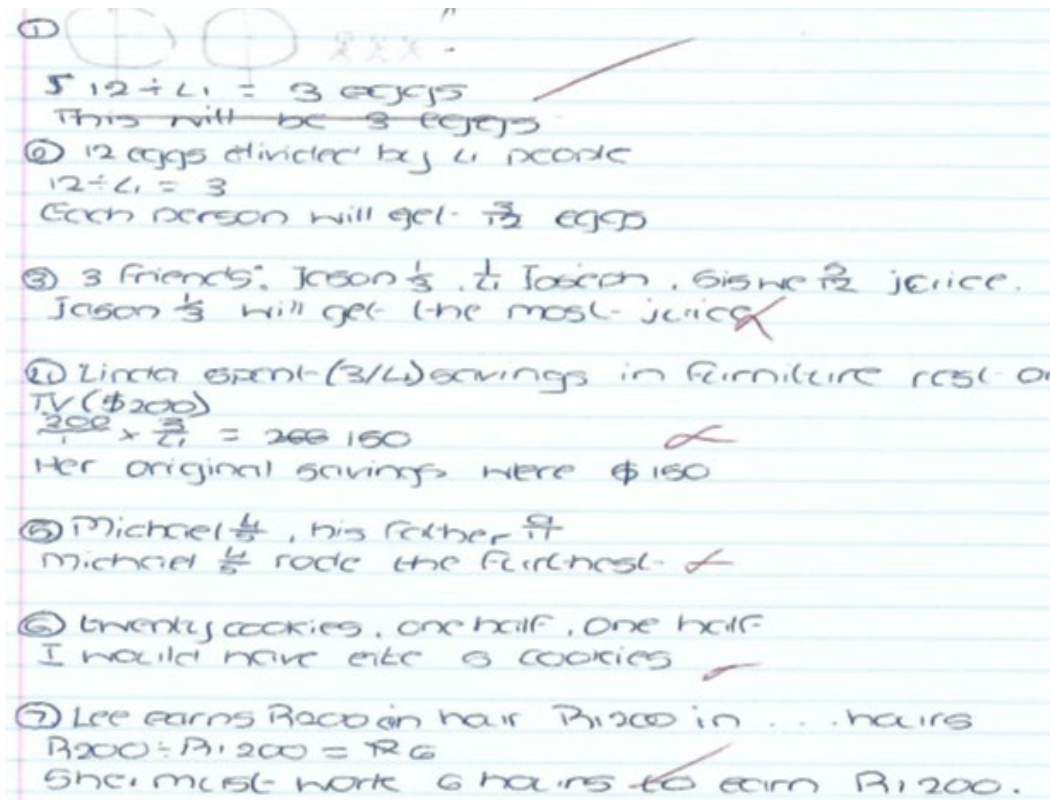 ①
5 12 ÷ 4 = 3 eggs
This will be 3 eggs
② 12 eggs divided by 4 people
12 ÷ 4 = 3
Each person will get 3/12 eggs
③ 3 friends: Jason 1/3, 1/4 Joseph, Siswe 2/12 juice.
Jason 1/3 will get the most juice
④ Linda spent (3/4) savings in furniture rest on
TV ($200)
200/1 × 3/4 = 266 150
Her original savings were $150
⑤ Michael 4/5, his father 9/11
Michael 4/5 rode the furthest
⑥ twenty cookies, one half, one half
I would have ate 5 cookies
⑦ Lee earns R200 an hour R1200 in ... hours
R200 ÷ R1200 = R6
She must work 6 hours to earn R1200.